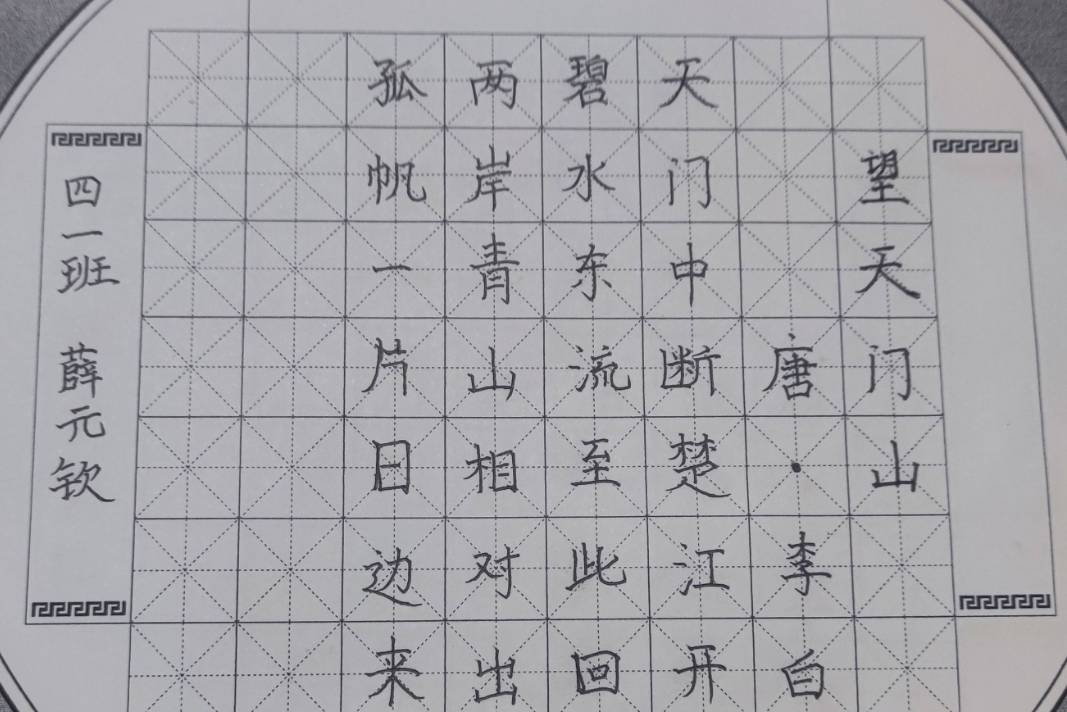 望天门山
唐·李白
天门中断楚江开
碧水东流至此回
两岸青山相对出
孤帆一片日边来
四一班 薛元钦